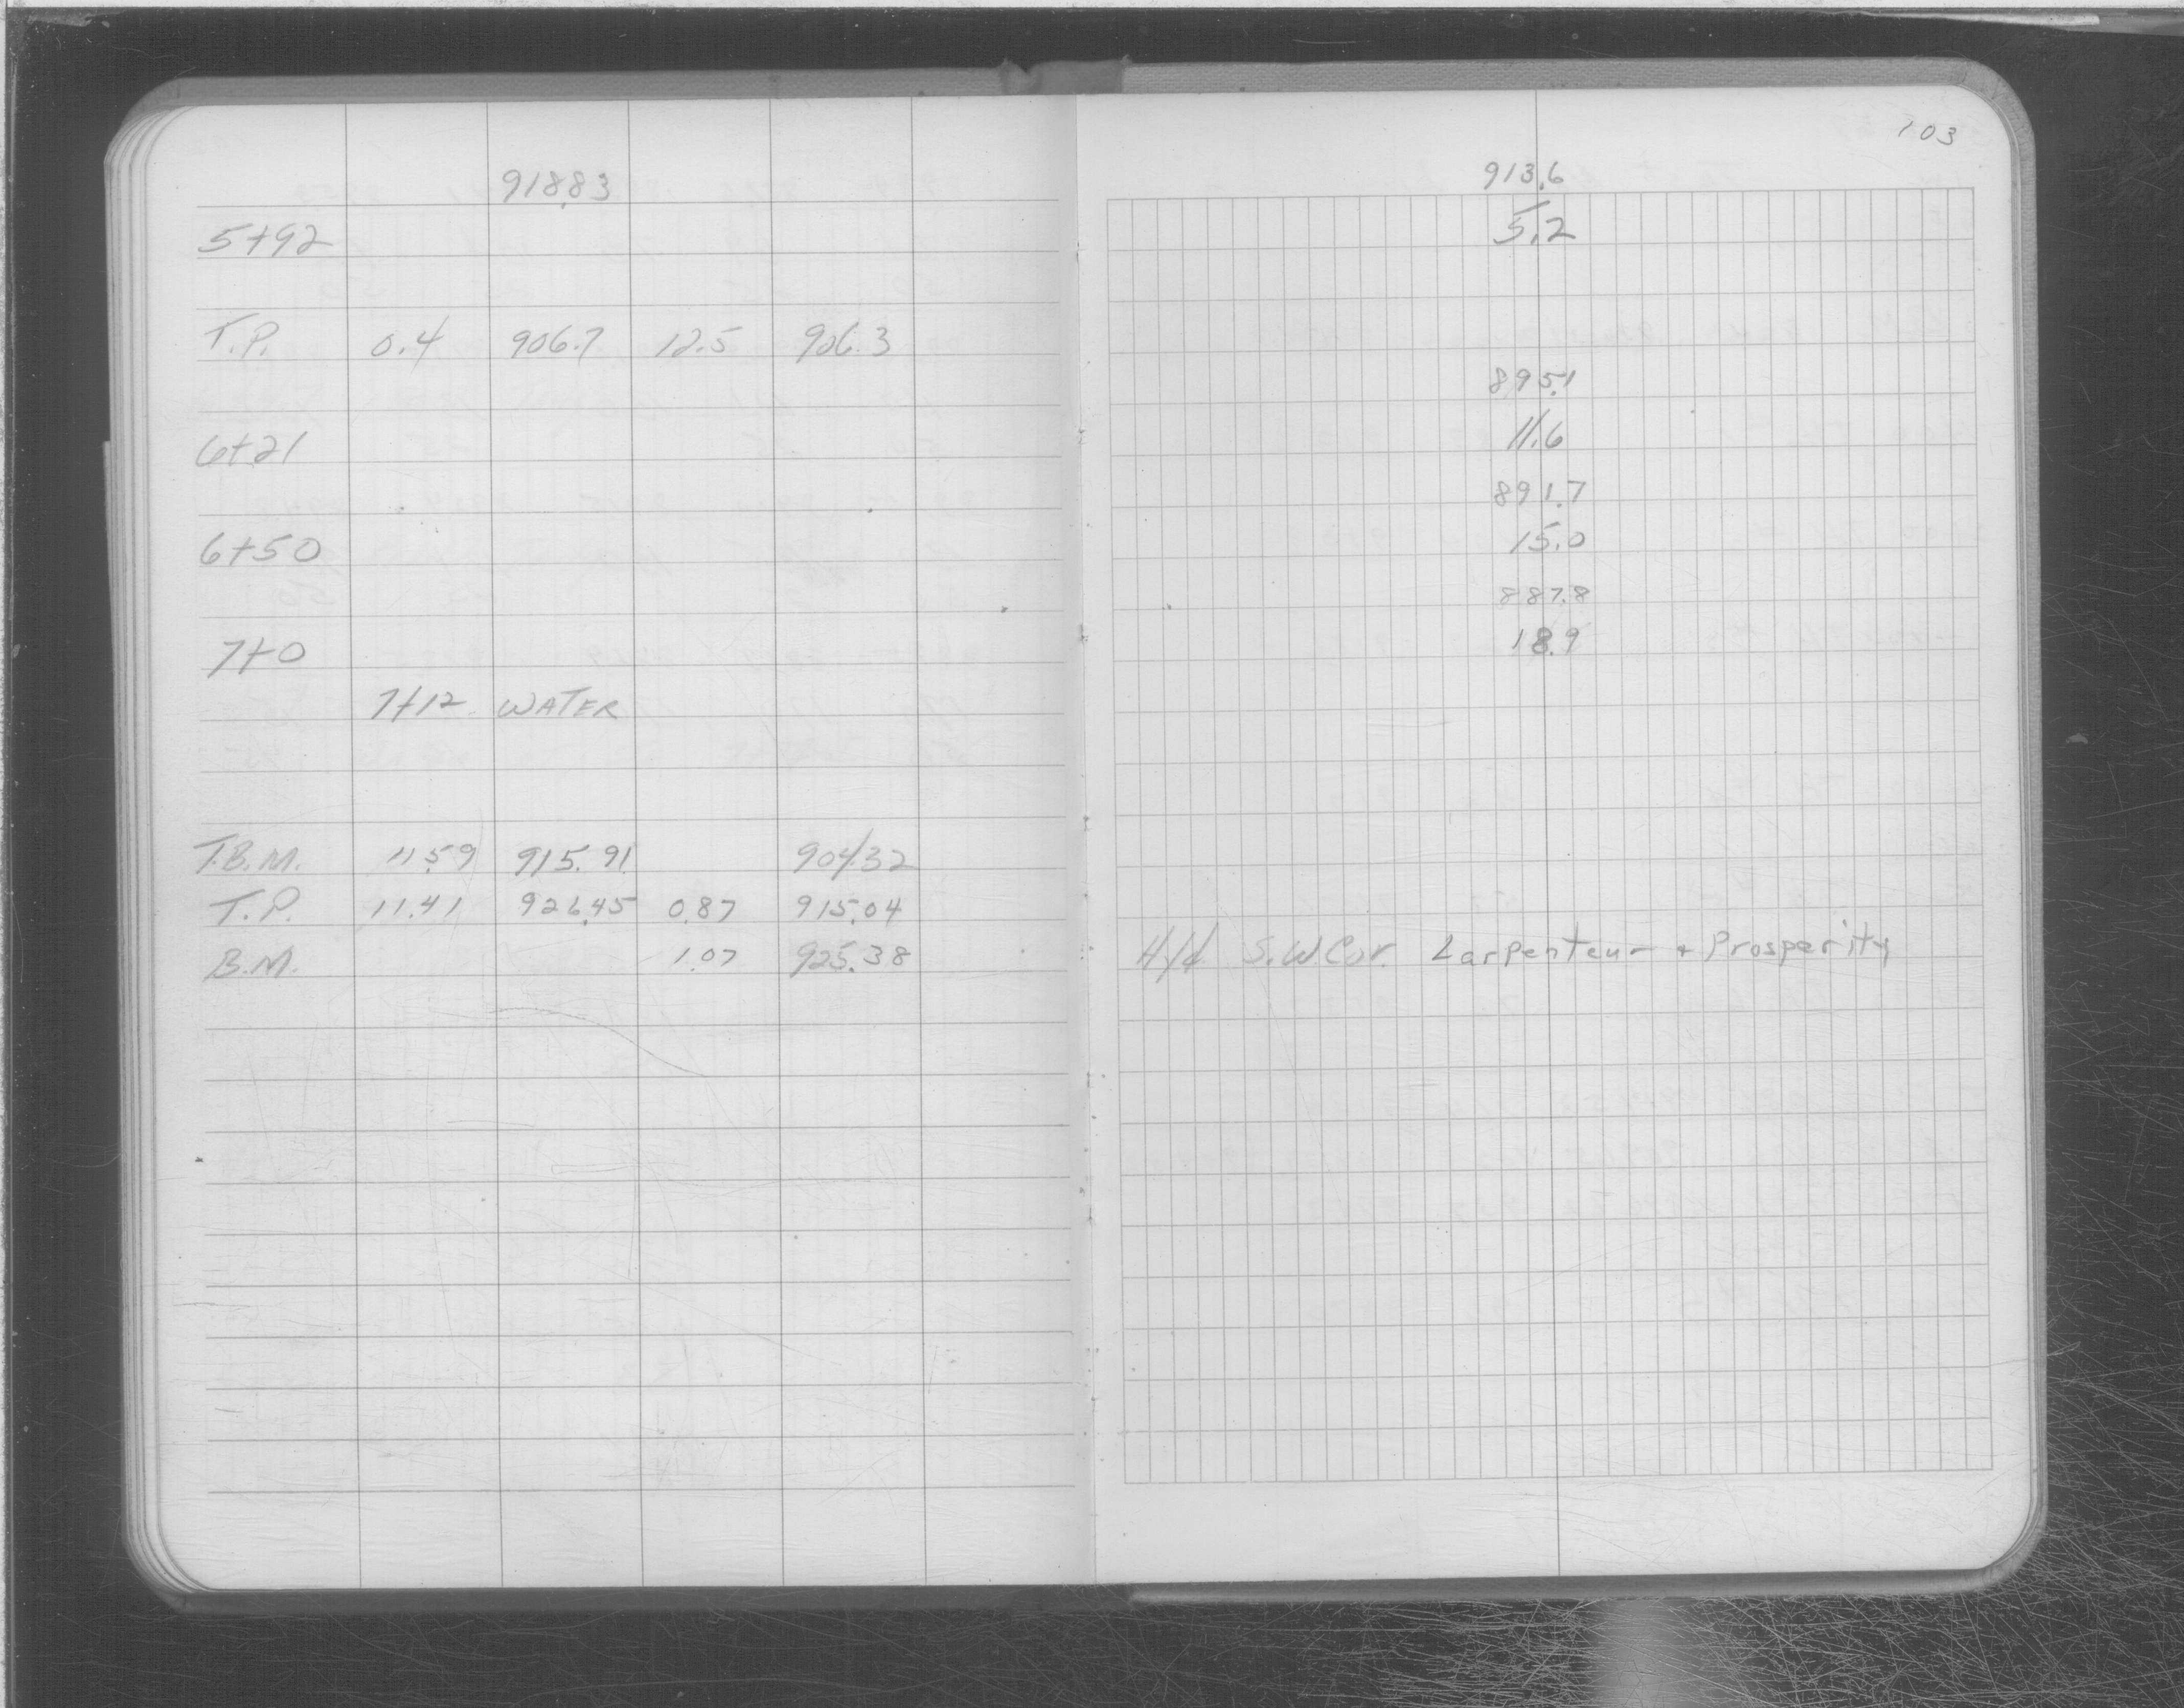 103
918.83 913.6
5+92 5.2
T.P. 0.4 906.7 12.5 906.3
895.1
6+21 11.6
891.7
6+50 15.0
887.8
7+0 18.9
7+12 WATER
T.B.M. 11.59 915.91 904.32
T.P. 11.41 926.45 0.87 915.04
B.M. 1.07 925.38 Hyd S.W Cor. Larpenteur + Prosperity